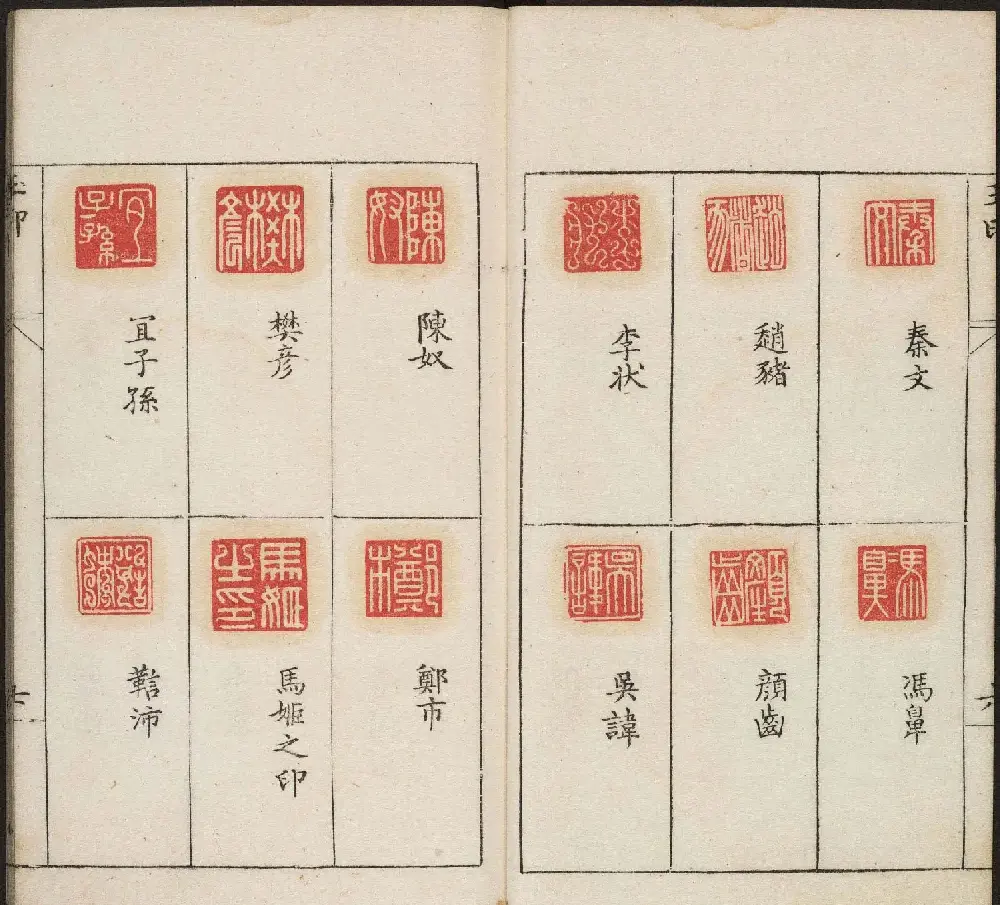 秦文
趙豬
李状
馮𠢕
顔齒
吳諱
陳奴
樊彦
宜子孫
鄭市
馬姬之印
沛